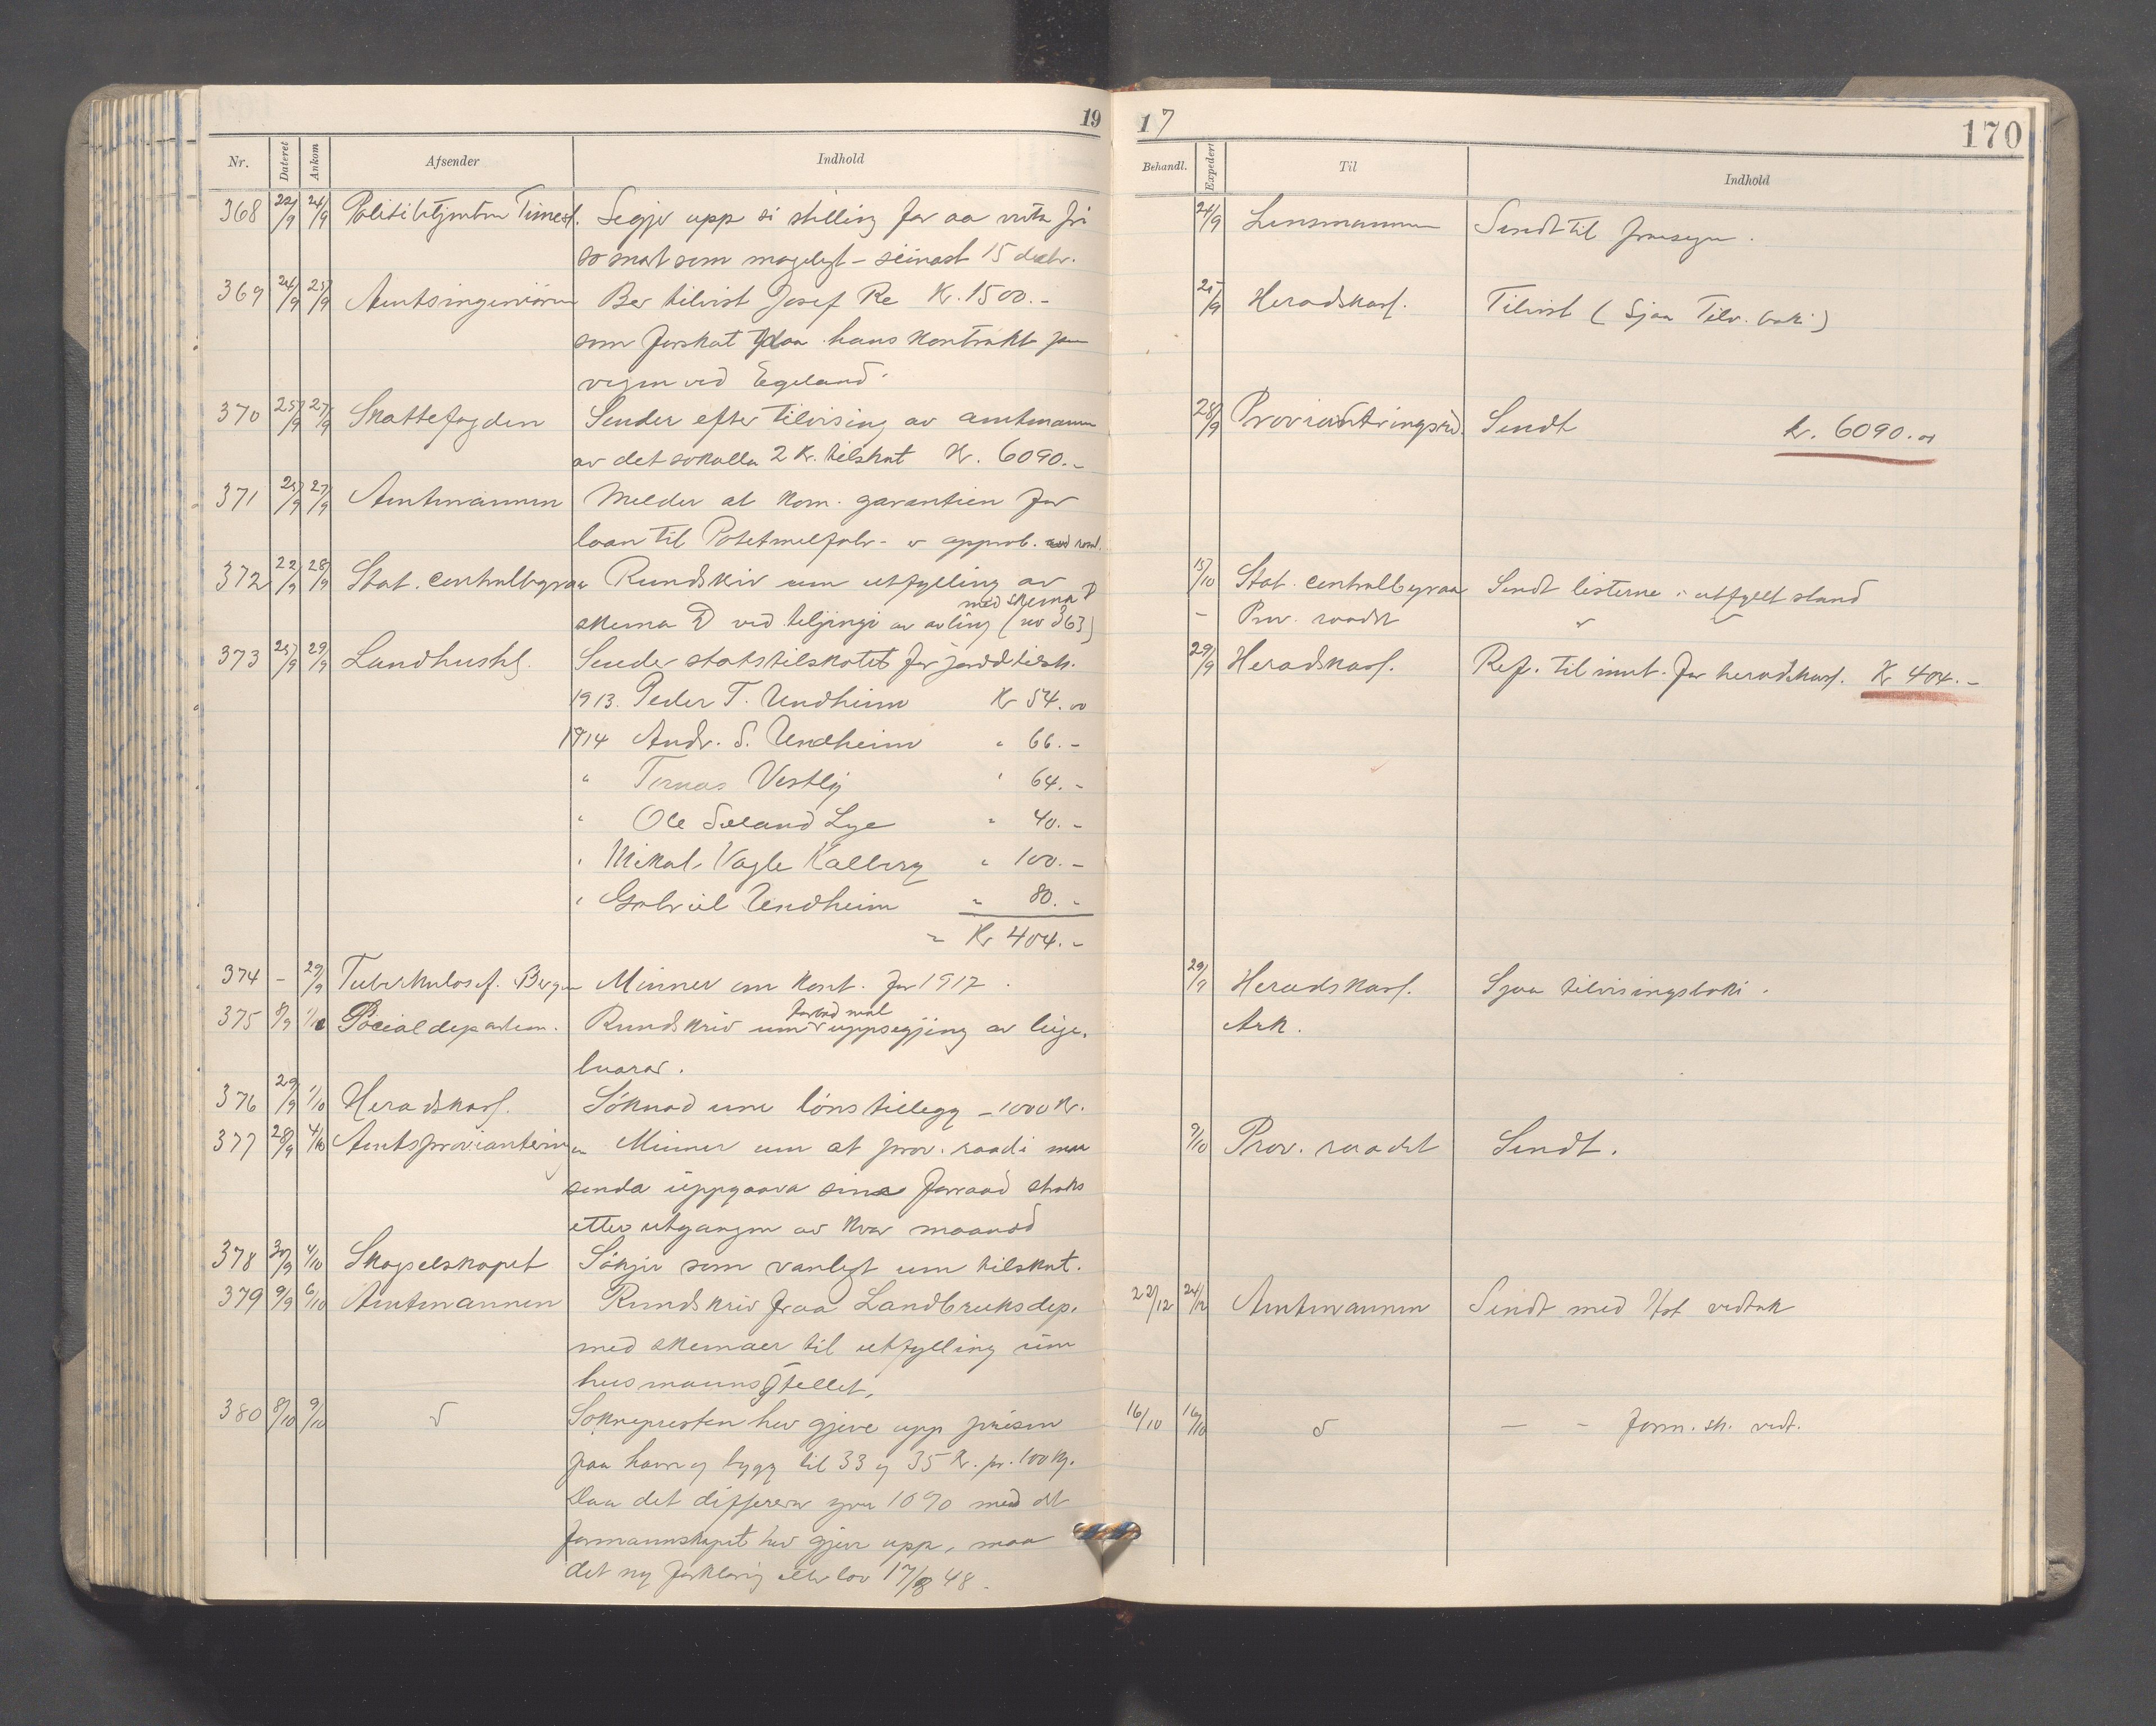 19
17
170
Nr. Dateret Ankom Afsender Indhold
Behandl. Expedert Til Indhold
368 22/9 24/9 Politibetjenten Timest. Segjer upp si stilling for aa verta fri
so snart som mogelegt - seinast 15 decbr.
24/9 Lensmannen Sendt til fraasegn.
369 24/9 25/9 Amtsingeniören Ber tilvist Josef Re Kr. 1500.-
som forskot paa hans kontrakt paa
vegen ved Egeland.
25/9 Heradskass. Tilvist (Sjaa Tilv. boki)
370 25/9 27/9 Skattefogden Sender efter tilvising av amtmannen
av det sokalla 2 Kr. tilskut Kr. 6090.-
28/9 Provianteringsrd. Sendt kr. 6090.00
371 25/9 27/9 Amtmannen Melder at kom. garantien for
laan til Potetmelfabr. er approb.
372 22/9 28/9 Stat. centralbyraa Rundskriv um utfylling av
med skema D
skema D ved teljingi av avling (nr 363)
15/10 Stat. centralbyraa Sendt listerne i utfyllt stand
- Prov. raadet " "
373 25/9 29/9 Landhush.s. Sender statstilskotet for jorddtilsk.
29/9 Heradskass. Ref. til innt. for heradskass. Kr 404.-
1913. Peder T. Undheim Kr 54.00
1914 Andr. S. Undheim " 66.-
" Tomas Vestly " 64.-
" Ole Sæland Lye " 40.-
" Mikal Vagle Kalberg " 100.-
" Gabriel Undheim " 80.-
= Kr 404.-
374 - 29/9 Tuberkulosef. Bergen Minner om kont. for 1917.
29/9 Heradskass. Sjaa tilvisingsboki.
375 8/9 1/10 Socialdepartem. Rundskriv um forbud mot uppsegjing av leige-
buarar.
Ark.
376 29/9 1/10 Heradskass. Söknad um lönstillegg - 1000 Kr.
377 28/9 4/10 Amtsprovianteringen Minner um at prov. raadi maa
senda uppgaava sine forraad straks
etter utgangen av kvar maanad
9/10 Prov. raadet Sendt.
378 30/9 4/10 Skogselskapet Sökjer som vanlegt um tilskut.
379 9/9 6/10 Amtmannen Rundskriv fraa Landbruksdep.
med skemaer til utfylling um
husmannstellet.
22/12 24/12 Amtmannen Sendt med Hst vedtak
380 8/10 9/10 " Soknepresten hev gjeve upp prisen
paa havre og bygg til 33 og 35 Kr. pr. 100 kg.
Daa det differerer yver 10% med det
formannskapet hev gjeve upp, maa
det ny forklaring etter lov 17/8 48.
16/10 16/10 " - - form. sk. vedt.